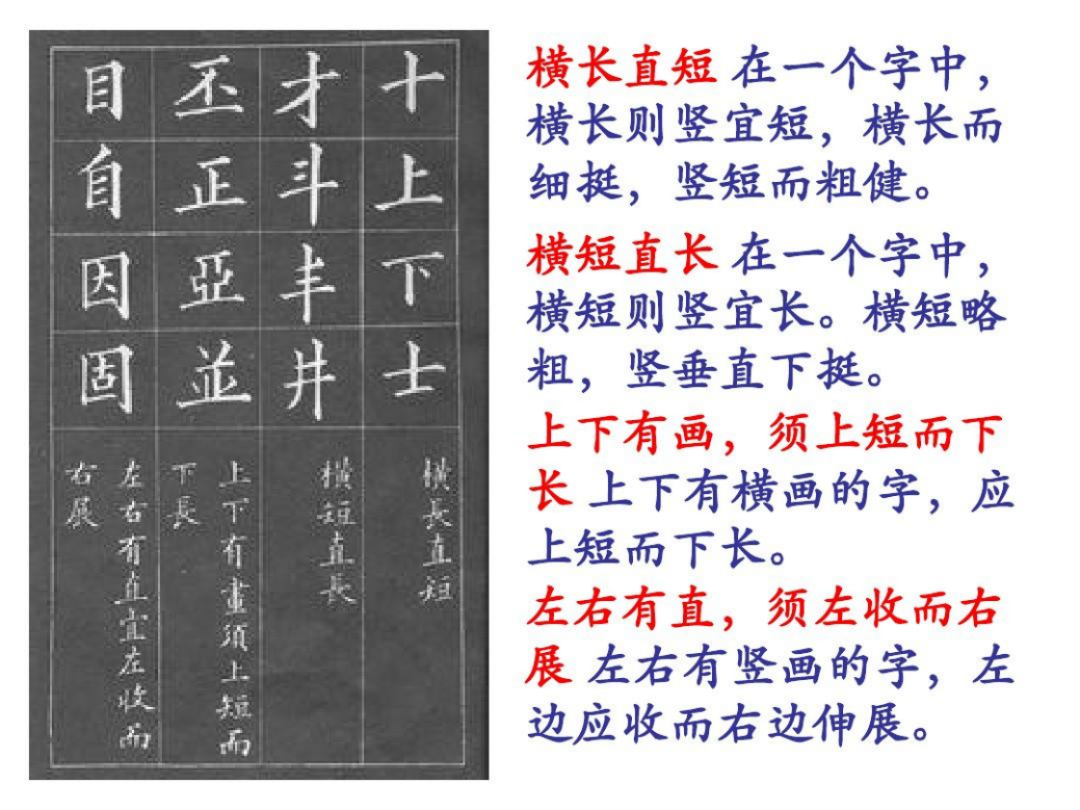 十上下士
橫長直短
才斗丰井
橫短直長
丕正亞並
上下有畫須上短而
下長
目自因固
左右有直宜左收而
右展
横长直短 在一个字中，
横长则竖宜短，横长而
细挺，竖短而粗健。
横短直长 在一个字中，
横短则竖宜长。横短略
粗，竖垂直下挺。
上下有画，须上短而下
长 上下有横画的字，应
上短而下长。
左右有直，须左收而右
展 左右有竖画的字，左
边应收而右边伸展。